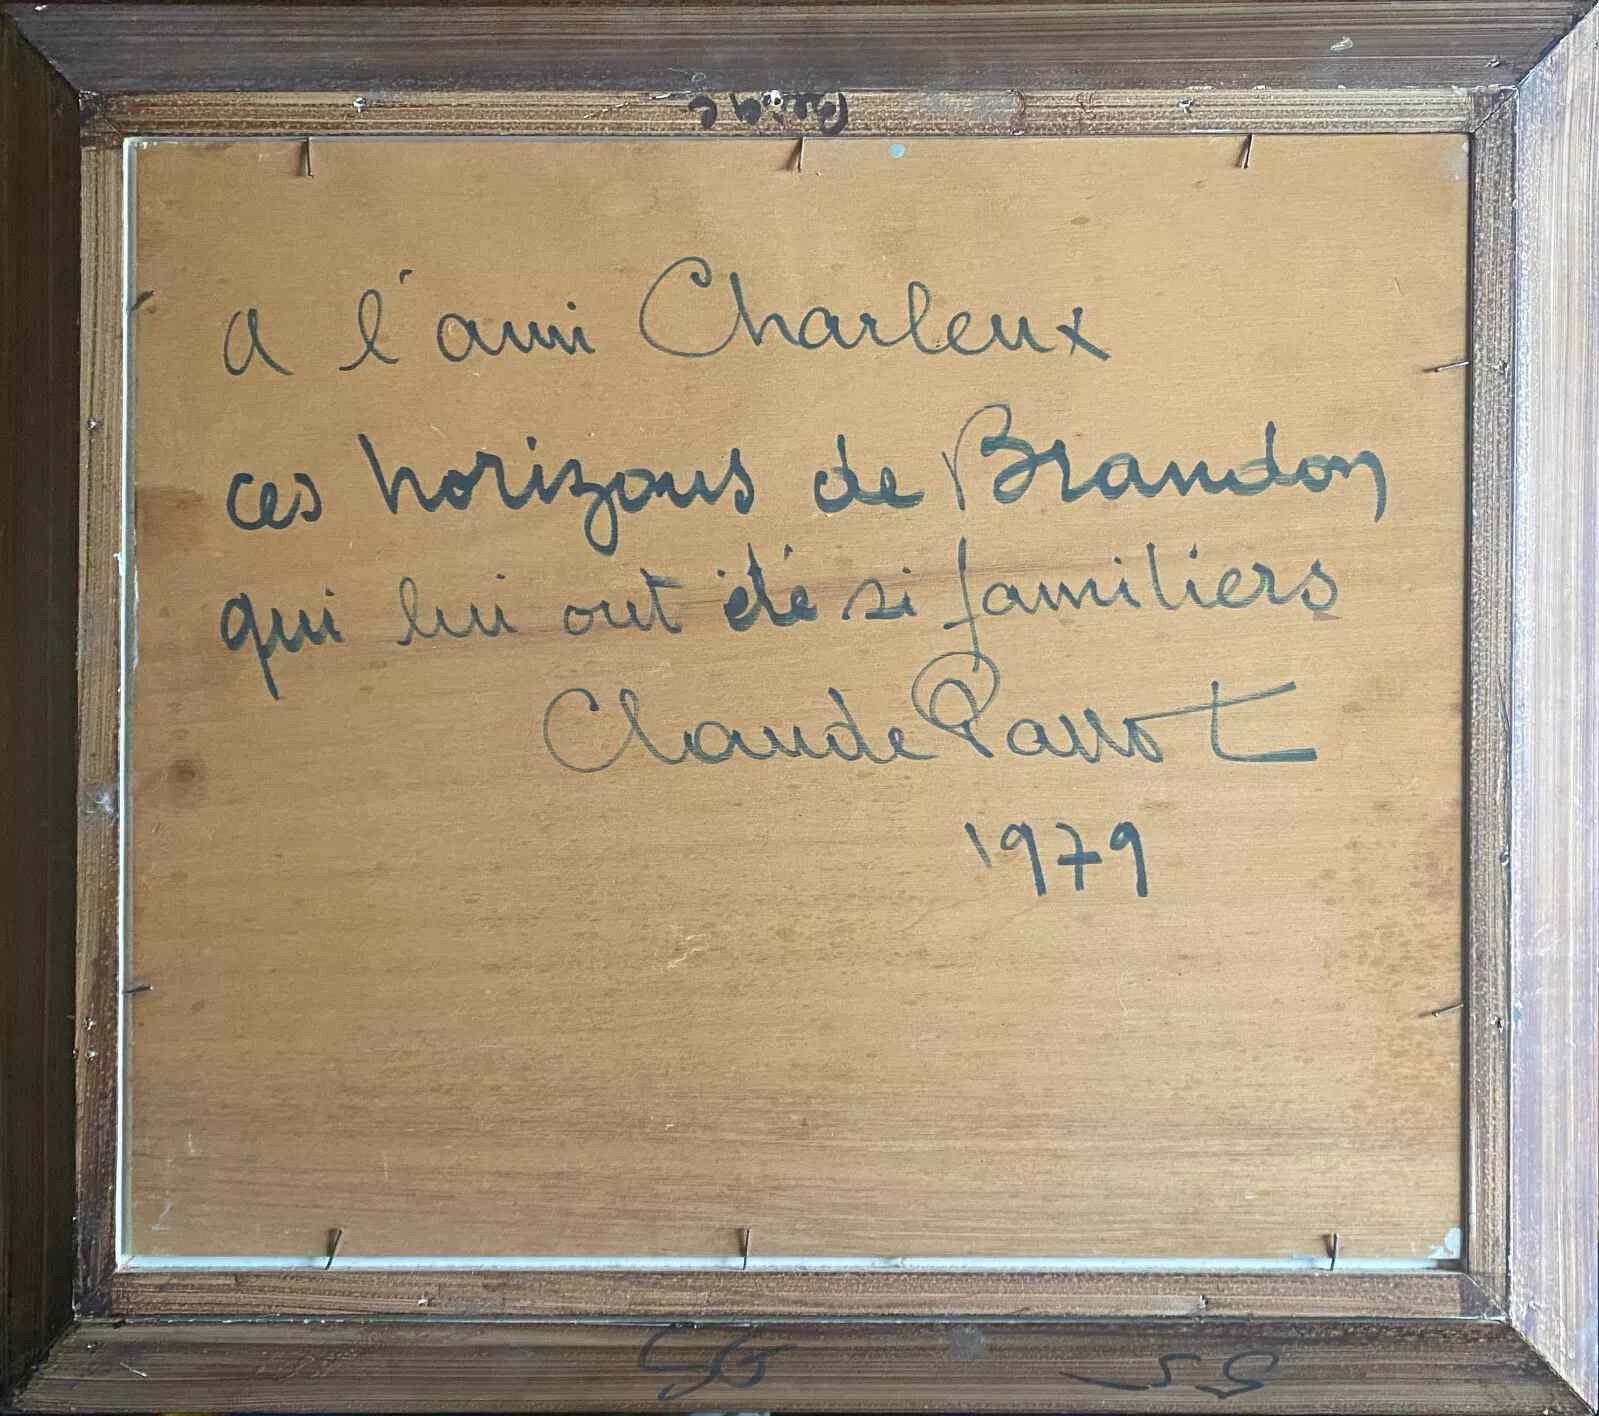 a l'ami Charleux
ces horizons de Brandon
qui lui ont été si familiers
Claude Parrot
1979